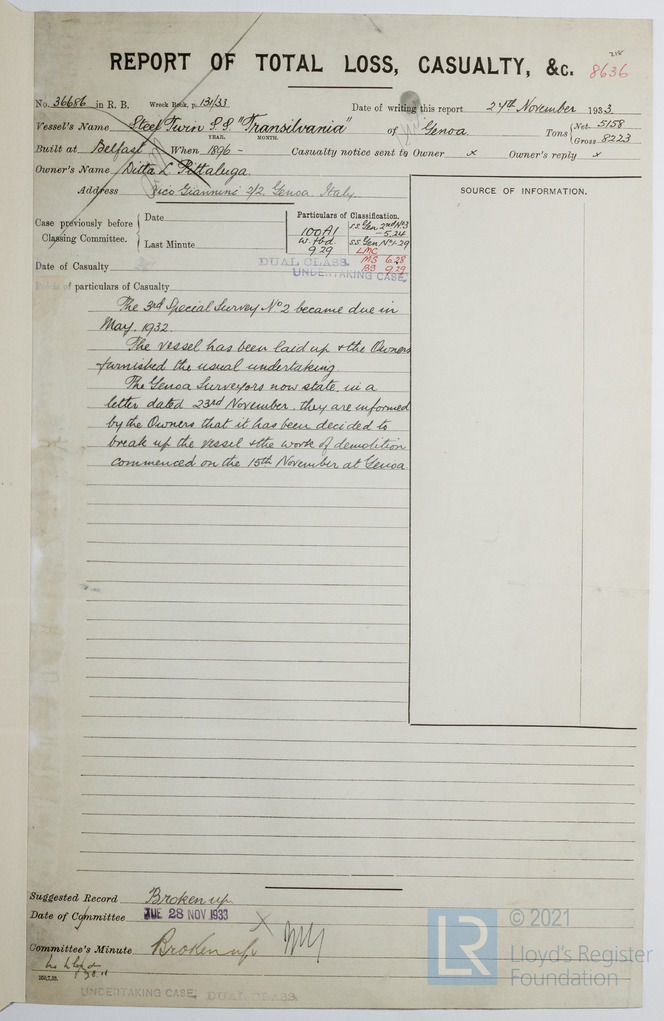 218
REPORT OF TOTAL LOSS, CASUALTY, &c. 8636
No. 36686 in R. B. Wreck Book, p. 131/33 Date of writing this report 27th November 1933
Vessel's Name Steel Twin S.S. "Transilvania" of Genoa. Tons { Net 5158 Gross 8223
YEAR. MONTH.
Built at Belfast When 1896 - Casualty notice sent to Owner x Owner's reply x
Owner's Name Ditta L. Pittaluga.
Address Vico Giannini 2/2. Genoa. Italy.
SOURCE OF INFORMATION.
Case previously before Classing Committee. { Date
Last Minute
Particulars of Classification.
100A1
W. fbd.
9.29
S.S. Gen 2nd No3
-5.24
S.S. Gen No1-29
LMC
MS 6.28
BS 9.29
Date of Casualty
DUAL CLASS.
UNDERTAKING CASE.
of particulars of Casualty
The 3rd Special Survey No 2 became due in
May, 1932.
The vessel has been laid up & the Owners
furnished the usual undertaking.
The Genoa Surveyors now state, in a
letter dated 23rd November, they are informed
by the Owners that it has been decided to
break up the vessel & the work of demolition
commenced on the 15th November at Genoa.
Suggested Record Broken up
Date of Committee TUE 28 NOV 1933
Committee's Minute Broken up
UNDERTAKING CASE. DUAL CLASS.
© 2021
LR
Lloyd's Register
Foundation